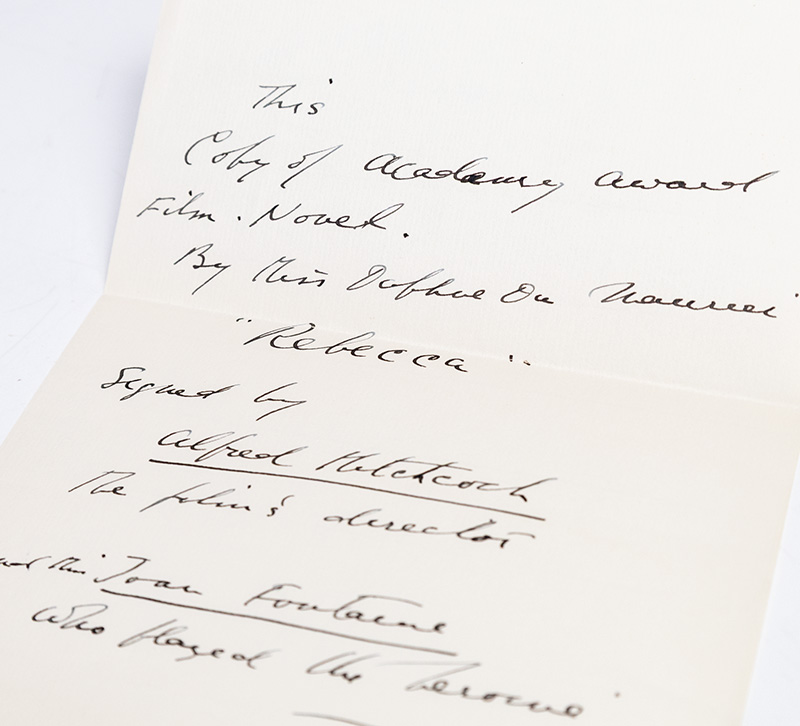 This
Copy of Academy Award
Film. Novel.
By Miss Daphne Du Maurier
"Rebecca"
Signed by
Alfred Hitchcock
The film's director
and Miss Joan Fontaine
who played the heroine